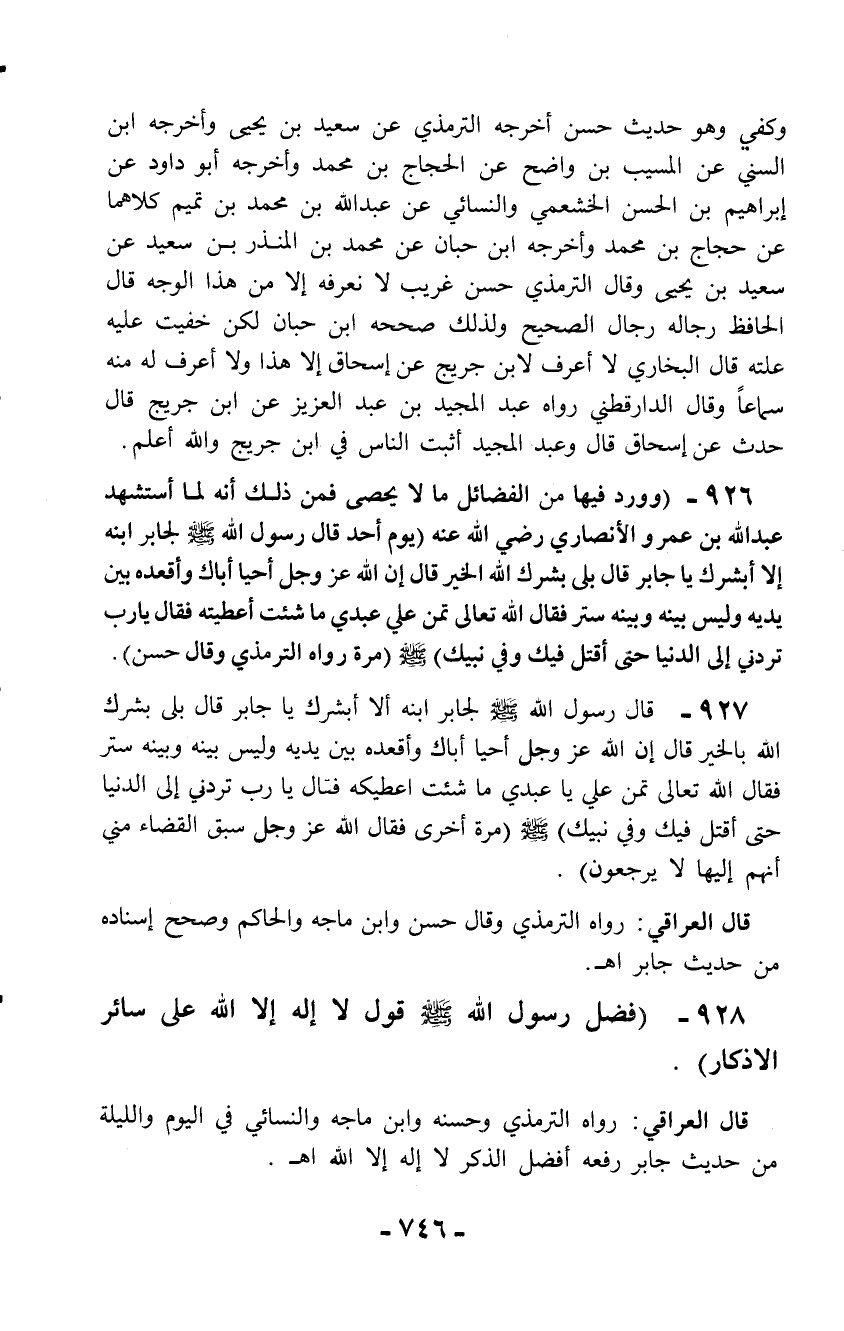 وكفي وهو حديث حسن أخرجه الترمذي عن سعيد بن يحيى وأخرجه ابن
السني عن المسيب بن واضح عن الحجاج بن محمد وأخرجه أبو داود عن
إبراهيم بن الحسن الخشعمي والنسائي عن عبدالله بن محمد بن تميم كلاهما
عن حجاج بن محمد وأخرجه ابن حبان عن محمد بن المنذر بن سعيد عن
سعيد بن يحيى وقال الترمذي حسن غريب لا نعرفه إلا من هذا الوجه قال
الحافظ رجاله رجال الصحيح ولذلك صححه ابن حبان لكن خفيت عليه
علته قال البخاري لا أعرف لابن جريج عن إسحاق إلا هذا ولا أعرف له منه
سماعاً وقال الدارقطني رواه عبد المجيد بن عبد العزيز عن ابن جريج قال
حدث عن إسحاق قال وعبد المجيد أثبت الناس في ابن جريج والله أعلم.
٩٢٦ - (وورد فيها من الفضائل ما لا يحصى فمن ذلك أنه لما أستشهد
عبدالله بن عمرو الأنصاري رضي الله عنه (يوم أحد قال رسول الله ﷺ لجابر ابنه
إلا أبشرك يا جابر قال بلى بشرك الله الخير قال إن الله عز وجل أحيا أباك وأقعده بين
يديه وليس بينه وبينه ستر فقال الله تعالى تمن علي عبدي ما شئت أعطيته فقال يارب
تردني إلى الدنيا حتى أقتل فيك وفي نبيك) ﷺ (مرة رواه الترمذي وقال حسن).
٩٢٧ - قال رسول الله ﷺ لجابر ابنه ألا أبشرك يا جابر قال بلى بشرك
الله بالخير قال إن الله عز وجل أحيا أباك وأقعده بين يديه وليس بينه وبينه ستر
فقال الله تعالى تمن علي يا عبدي ما شئت اعطيكه فقال يا رب تردني إلى الدنيا
حتى أقتل فيك وفي نبيك) ﷺ (مرة أخرى فقال الله عز وجل سبق القضاء مني
أنهم إليها لا يرجعون) .
قال العراقي: رواه الترمذي وقال حسن وابن ماجه والحاكم وصحح إسناده
من حديث جابر اهـ.
٩٢٨ - (فضل رسول الله ﷺ قول لا إله إلا الله على سائر
الاذكار) .
قال العراقي: رواه الترمذي وحسنه وابن ماجه والنسائي في اليوم والليلة
من حديث جابر رفعه أفضل الذكر لا إله إلا الله اهـ .
- ٧٤٦ -